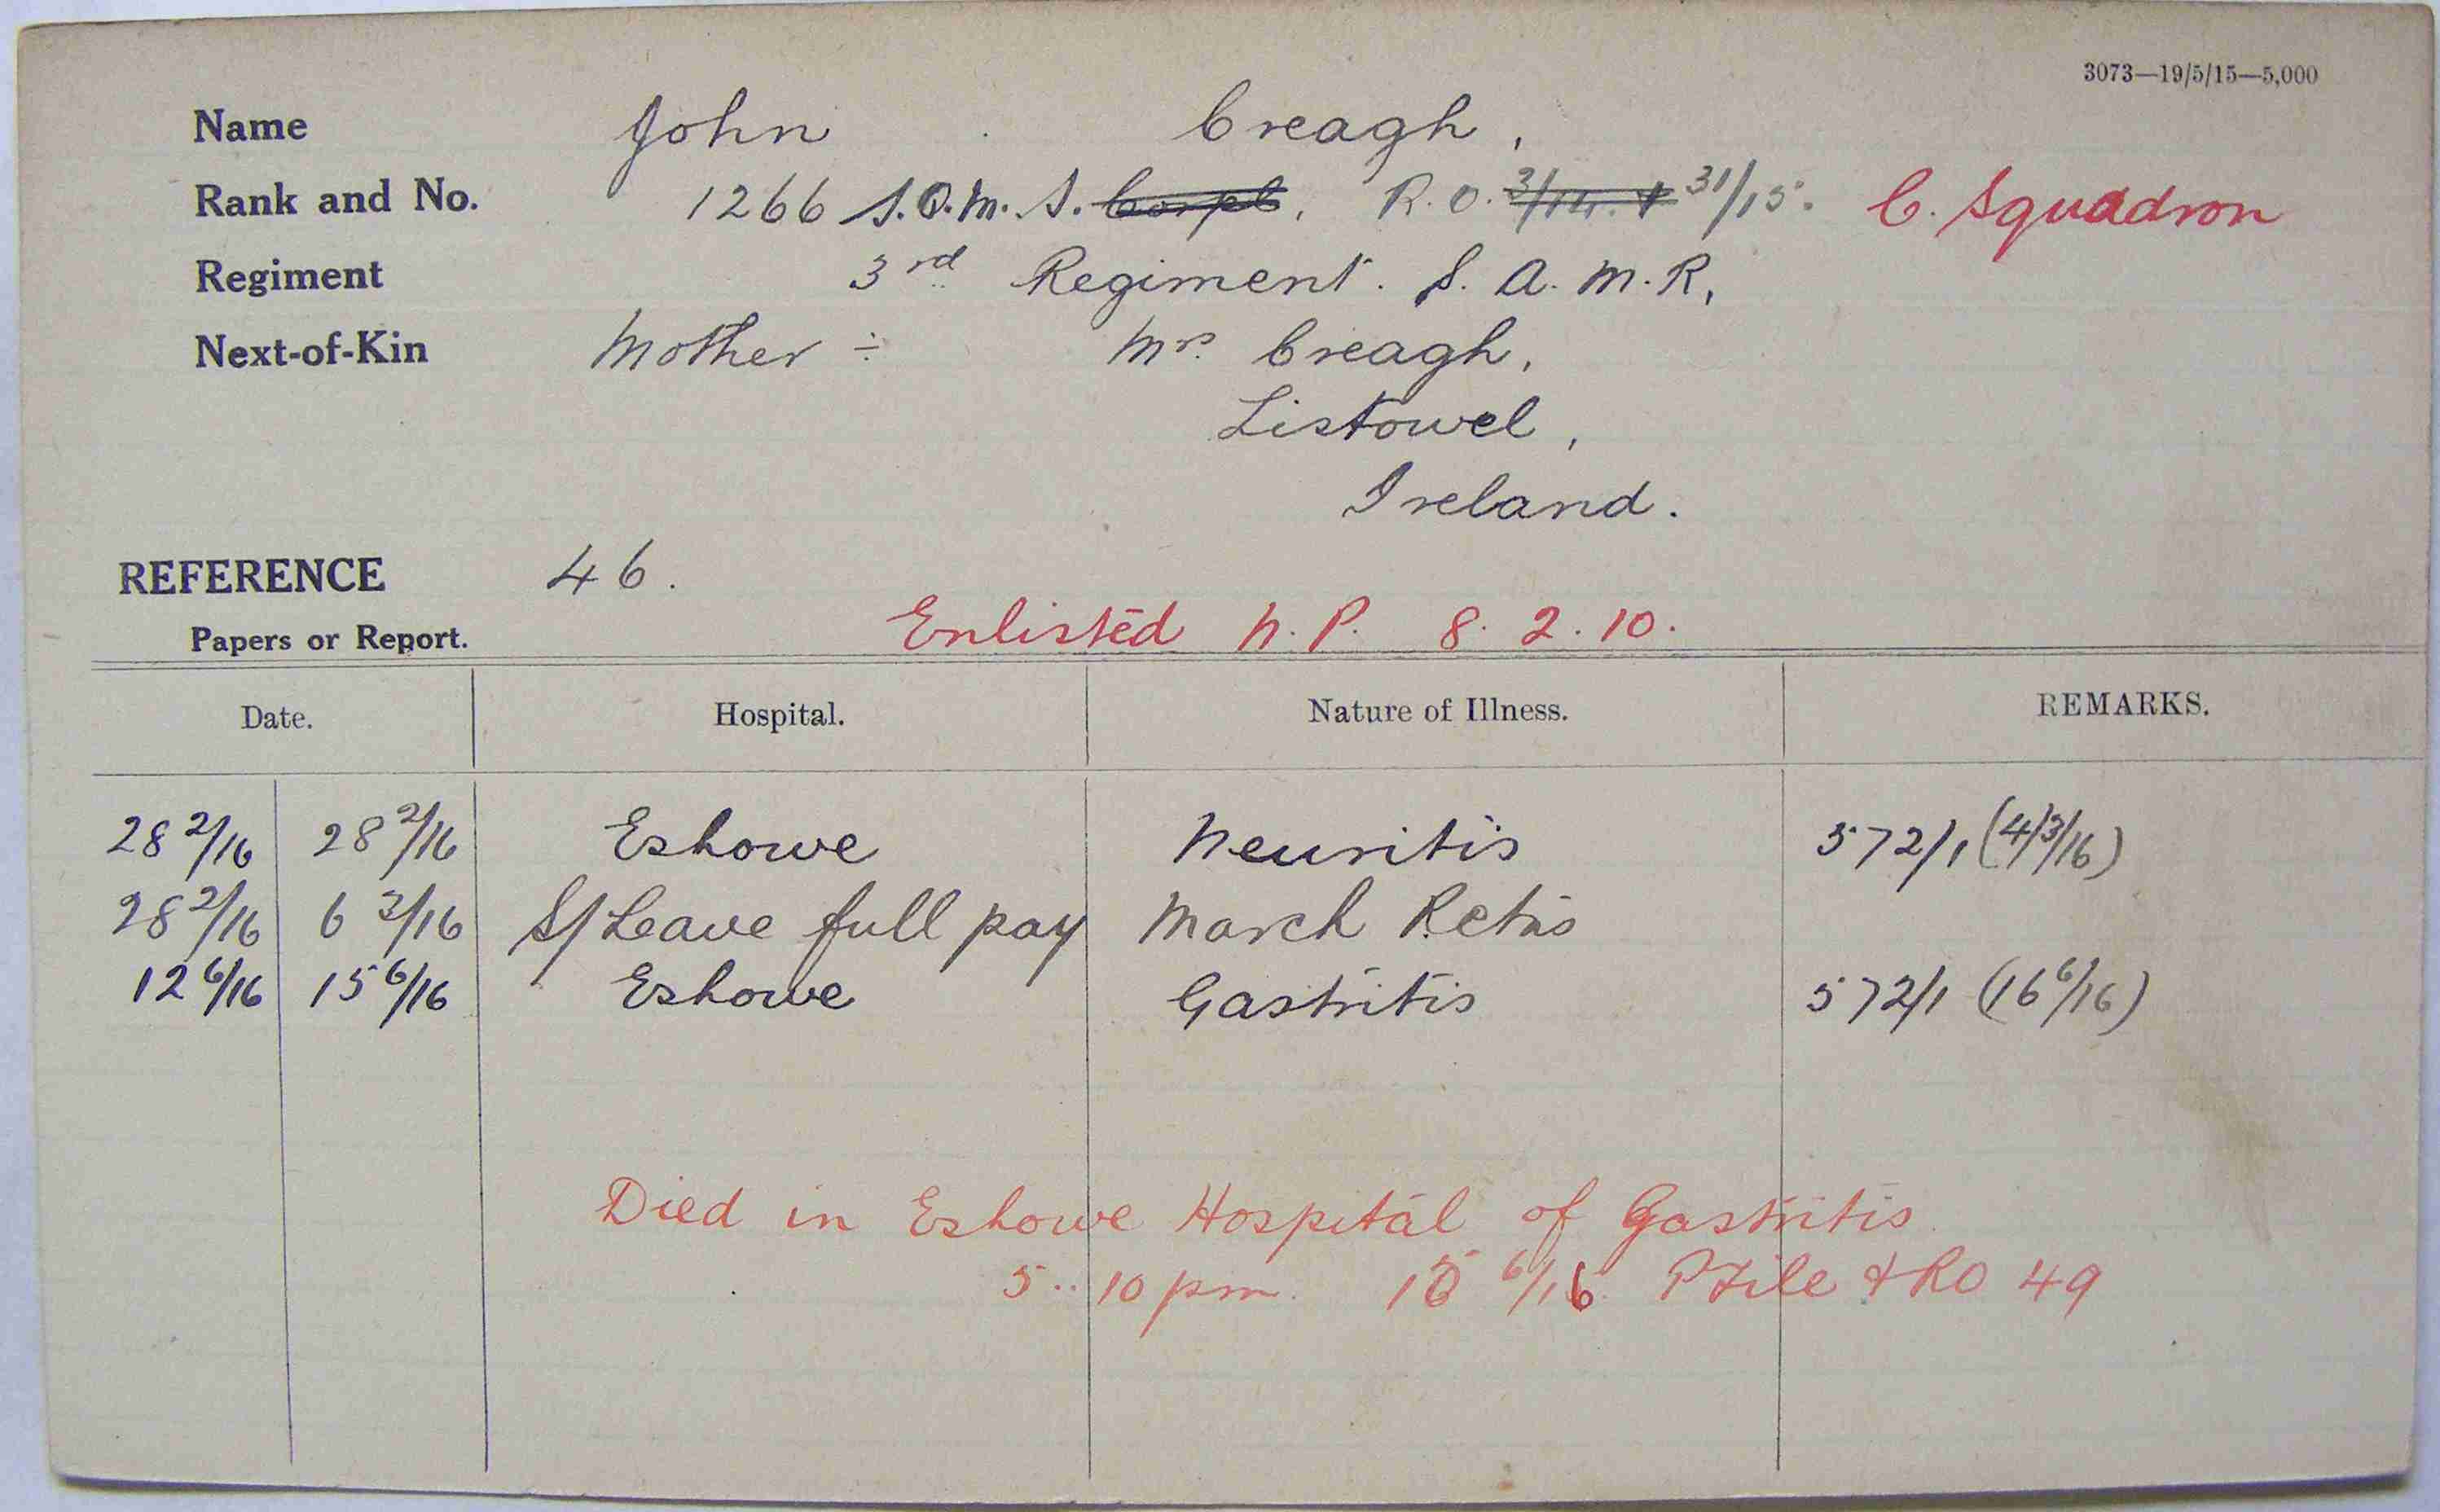 3073—19/5/15—5,000
Name John Creagh,
Rank and No. 1266 S.Q.M.S. Corpl, R.O. 3/14. & 31/15. C. Squadron
Regiment 3rd Regiment. S. A. M. R,
Next-of-Kin Mother ÷ Mrs. Creagh,
Listowel,
Ireland.
REFERENCE 46.
Enlisted N.P. 8. 2. 10.
Papers or Report.
Date. Hospital. Nature of Illness. REMARKS.
28 2/16 28 2/16 Eshowe Neuritis 572/1 (4/3/16)
28 2/16 6 3/16 S/Leave full pay March Retns
12 6/16 15 6/16 Eshowe Gastritis 572/1 (16 6/16)
Died in Eshowe Hospital of Gastritis
5..10 pm. 6/16 P File & RO 49